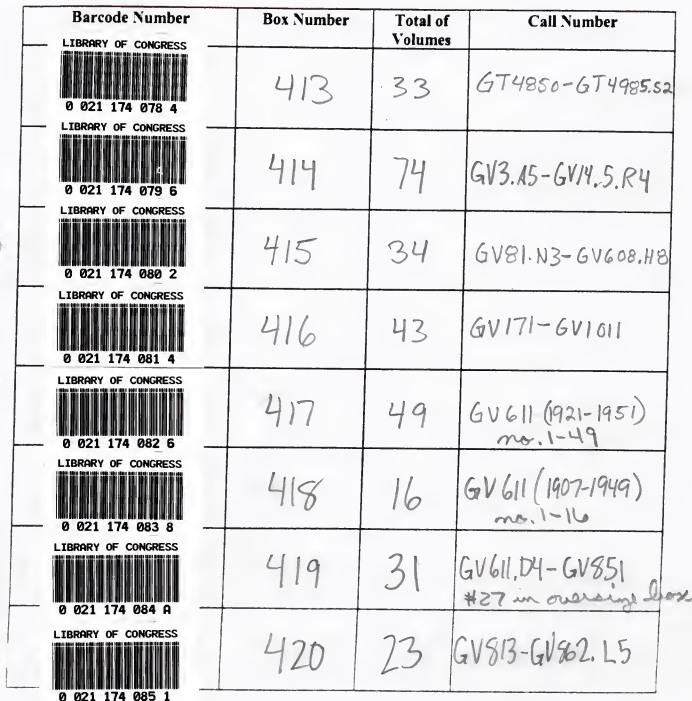 Barcode Number Box Number Total of Volumes Call Number
LIBRARY OF CONGRESS
0 021 174 078 4
413 33 GT4850-GT4985.S2
LIBRARY OF CONGRESS
0 021 174 079 6
414 74 GV3.A5-GV14.5.R4
LIBRARY OF CONGRESS
0 021 174 080 2
415 34 GV81.N3-GV608.H8
LIBRARY OF CONGRESS
0 021 174 081 4
416 43 GV171-GV1011
LIBRARY OF CONGRESS
0 021 174 082 6
417 49 GV611 (1921-1951)
no. 1-49
LIBRARY OF CONGRESS
0 021 174 083 8
418 16 GV611 (1907-1949)
no. 1-16
LIBRARY OF CONGRESS
0 021 174 084 A
419 31 GV611.D4-GV851
#27 in oversize box
LIBRARY OF CONGRESS
0 021 174 085 1
420 23 GV813-GV862.L5